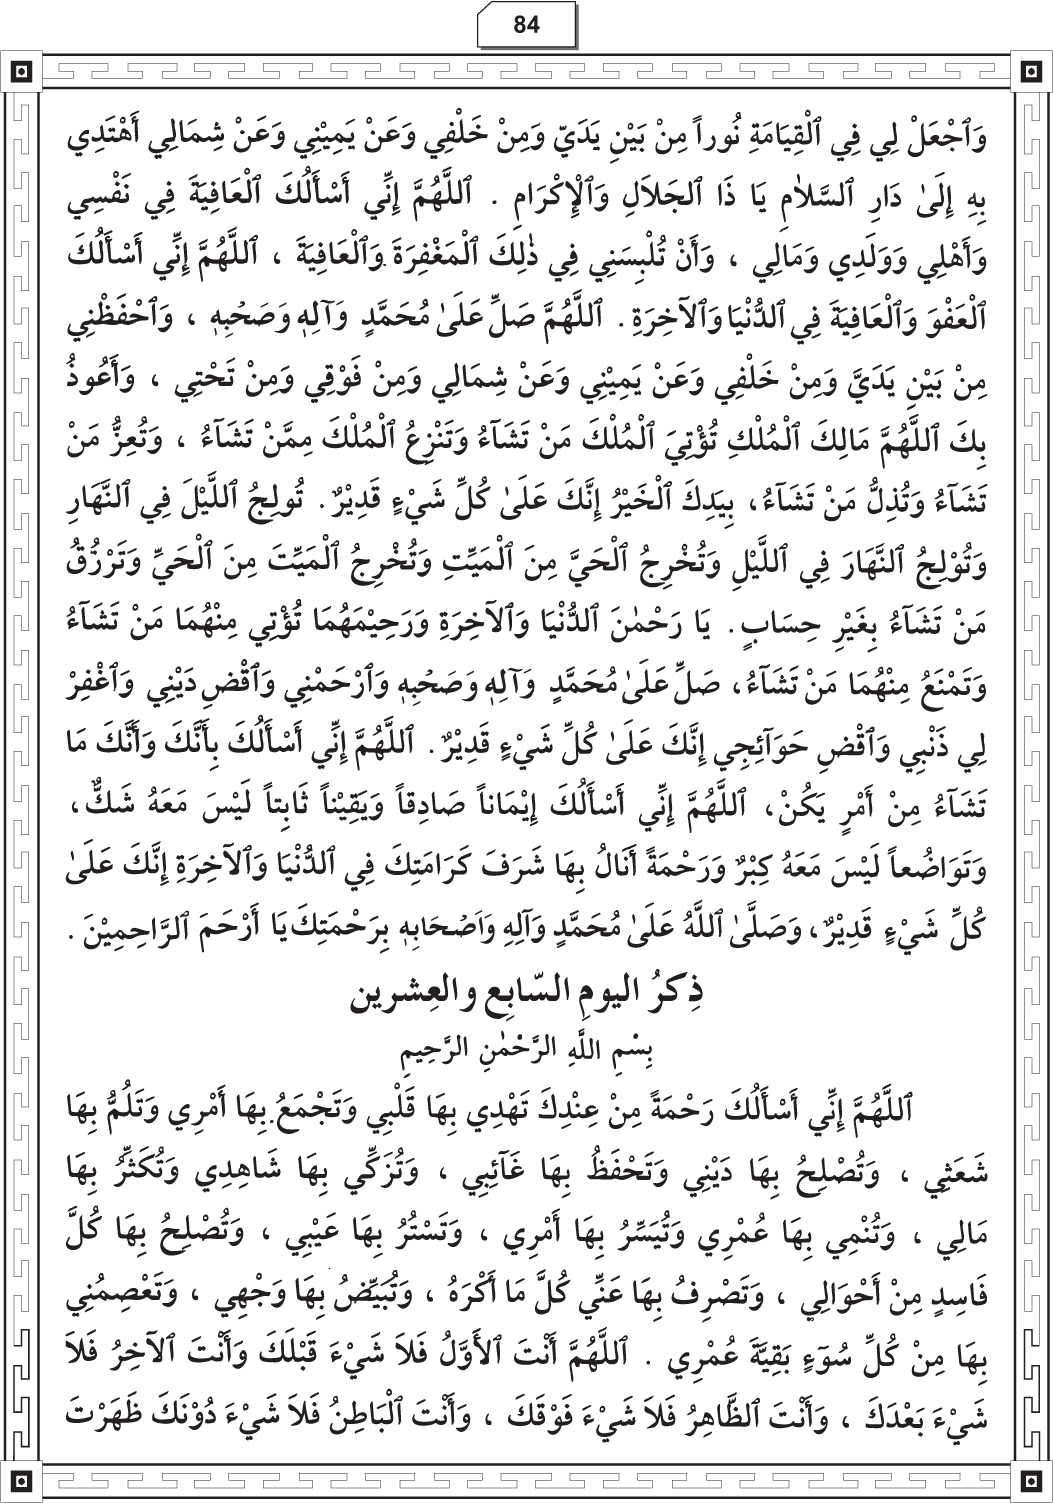 84
وَٱجْعَلْ لِي فِي ٱلْقِيَامَةِ نُوراً مِنْ بَيْنِ يَدَيّ وَمِنْ خَلْفِي وَعَنْ يَمِيْنِي وَعَنْ شِمَالِي أَهْتَدِي
بِهِ إِلَىٰ دَارِ ٱلسَّلاٰمِ يَا ذَا ٱلجَلاَلِ وَٱلْإِكْرَامِ . ٱللَّهُمَّ إِنِّي أَسْأَلُكَ ٱلْعَافِيَةَ فِي نَفْسِي
وَأَهْلِي وَوَلَدِي وَمَالِي ، وَأَنْ تُلْبِسَنِي فِي ذٰلِكَ ٱلْمَغْفِرَةَ وَٱلْعَافِيَةَ ، ٱللَّهُمَّ إِنِّي أَسْأَلُكَ
ٱلْعَفْوَ وَٱلْعَافِيَةَ فِي ٱلدُّنْيَا وَٱلآخِرَةِ . ٱللَّهُمَّ صَلِّ عَلَىٰ مُحَمَّدٍ وَآلِهٖ وَصَحْبِهٖ ، وَٱحْفَظْنِي
مِنْ بَيْنِ يَدَيَّ وَمِنْ خَلْفِي وَعَنْ يَمِيْنِي وَعَنْ شِمَالِي وَمِنْ فَوْقِي وَمِنْ تَحْتِي ، وَأَعُوذُ
بِكَ ٱللَّهُمَّ مَالِكَ ٱلْمُلْكِ تُؤْتِيَ ٱلْمُلْكَ مَنْ تَشَآءُ وَتَنْزِعُ ٱلْمُلْكَ مِمَّنْ تَشَآءُ ، وَتُعِزُّ مَنْ
تَشَآءُ وَتُذِلُّ مَنْ تَشَآءُ، بِيَدِكَ ٱلْخَيْرُ إِنَّكَ عَلَىٰ كُلِّ شَيْءٍ قَدِيْرٌ . تُولِجُ ٱللَّيْلَ فِي ٱلنَّهَارِ
وَتُوْلِجُ ٱلنَّهَارَ فِي ٱللَّيْلِ وَتُخْرِجُ ٱلْحَيَّ مِنَ ٱلْمَيِّتِ وَتُخْرِجُ ٱلْمَيِّتَ مِنَ ٱلْحَيِّ وَتَرْزُقُ
مَنْ تَشَآءُ بِغَيْرِ حِسَابٍ . يَا رَحْمٰنَ ٱلدُّنْيَا وَٱلآخِرَةِ وَرَحِيْمَهُمَا تُؤْتِي مِنْهُمَا مَنْ تَشَآءُ
وَتَمْنَعُ مِنْهُمَا مَنْ تَشَآءُ، صَلِّ عَلَىٰ مُحَمَّدٍ وَآلِهٖ وَصَحْبِهٖ وَٱرْحَمْنِي وَٱقْضِ دَيْنِي وَٱغْفِرْ
لِي ذَنْبِي وَٱقْضِ حَوَآئِجِي إِنَّكَ عَلَىٰ كُلِّ شَيْءٍ قَدِيْرٌ . ٱللَّهُمَّ إِنِّي أَسْأَلُكَ بِأَنَّكَ وَأَنَّكَ مَا
تَشَآءُ مِنْ أَمْرٍ يَكُنْ، ٱللَّهُمَّ إِنِّي أَسْأَلُكَ إِيْمَاناً صَادِقاً وَيَقِيْناً ثَابِتاً لَيْسَ مَعَهُ شَكٌّ،
وَتَوَاضُعاً لَيْسَ مَعَهُ كِبْرٌ وَرَحْمَةً أَنَالُ بِهَا شَرَفَ كَرَامَتِكَ فِي ٱلدُّنْيَا وَٱلآخِرَةِ إِنَّكَ عَلَىٰ
كُلِّ شَيْءٍ قَدِيْرٌ، وَصَلَّىٰ ٱللَّهُ عَلَىٰ مُحَمَّدٍ وَآلِهِ وَاَصْحَابِهٖ بِرَحْمَتِكَ يَا أَرْحَمَ ٱلرَّاحِمِيْنَ .
ذِكرُ اليومِ السّابِع والعِشرين
بِسْمِ اللَّهِ الرَّحْمٰنِ الرَّحِيمِ
ٱللَّهُمَّ إِنِّي أَسْأَلُكَ رَحْمَةً مِنْ عِنْدِكَ تَهْدِي بِهَا قَلْبِي وَتَجْمَعُ بِهَا أَمْرِي وَتَلُمُّ بِهَا
شَعَثِي ، وَتُصْلِحُ بِهَا دَيْنِي وَتَحْفَظُ بِهَا غَآئِبِي ، وَتُزَكِّي بِهَا شَاهِدِي وَتُكَثِّرُ بِهَا
مَالِي ، وَتُنْمِي بِهَا عُمْرِي وَتُيَسِّرُ بِهَا أَمْرِي ، وَتَسْتُرُ بِهَا عَيْبِي ، وَتُصْلِحُ بِهَا كُلَّ
فَاسِدٍ مِنْ أَحْوَالِي ، وَتَصْرِفُ بِهَا عَنِّي كُلَّ مَا أَكْرَهُ ، وَتُبَيِّضُ بِهَا وَجْهِي ، وَتَعْصِمُنِي
بِهَا مِنْ كُلِّ سُوٓءٍ بَقِيَّةَ عُمْرِي . ٱللَّهُمَّ أَنْتَ ٱلأَوَّلُ فَلاَ شَيْءَ قَبْلَكَ وَأَنْتَ ٱلآخِرُ فَلاَ
شَيْءَ بَعْدَكَ ، وَأَنْتَ ٱلظَّاهِرُ فَلاَ شَيْءَ فَوْقَكَ ، وَأَنْتَ ٱلْبَاطِنُ فَلاَ شَيْءَ دُوْنَكَ ظَهَرْتَ